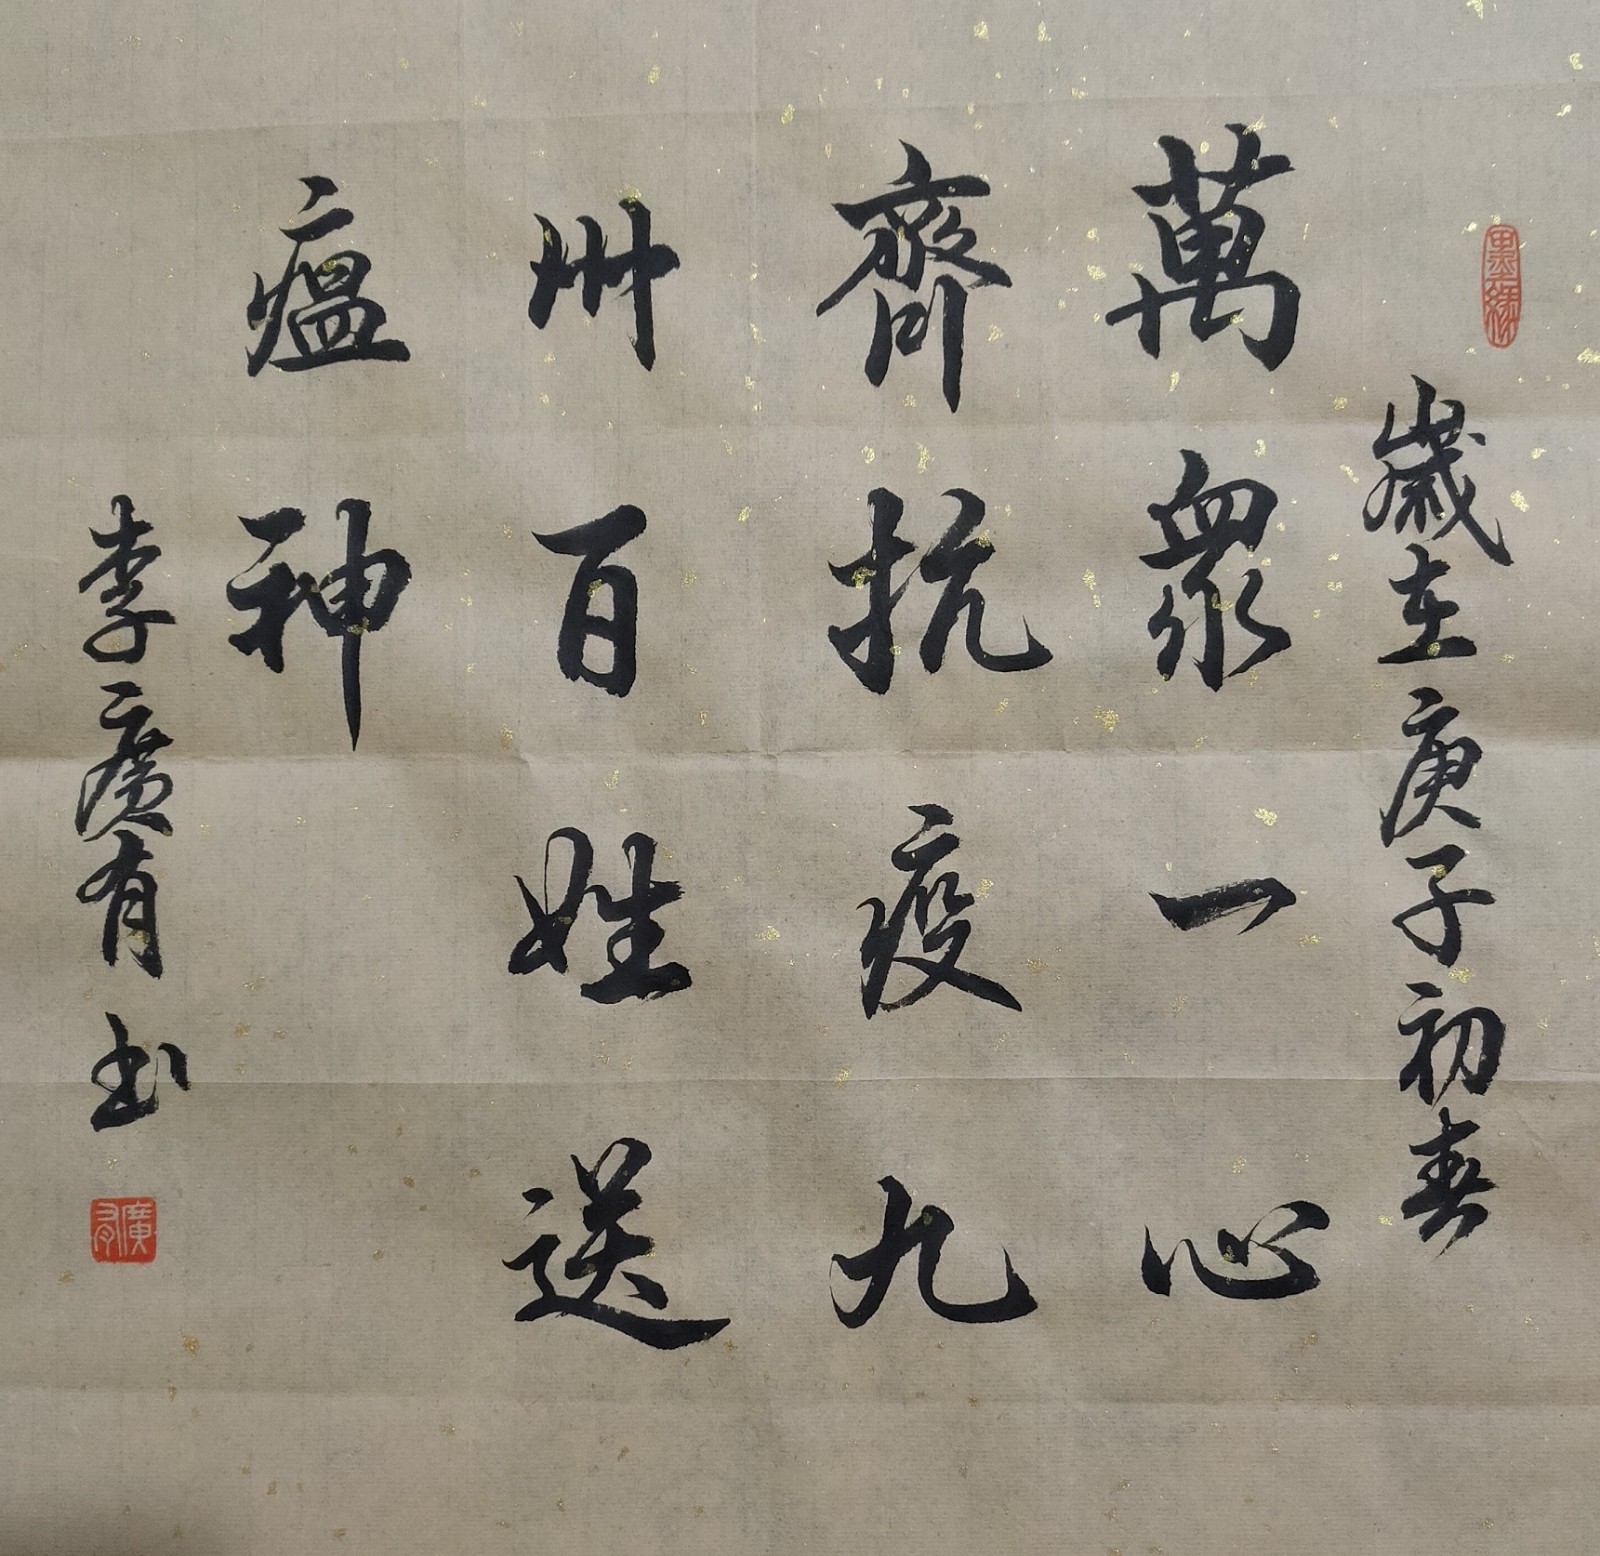 墨緣
歲在庚子初春
萬衆一心
齊抗疫九
州百姓送
瘟神
李廣有书
廣有